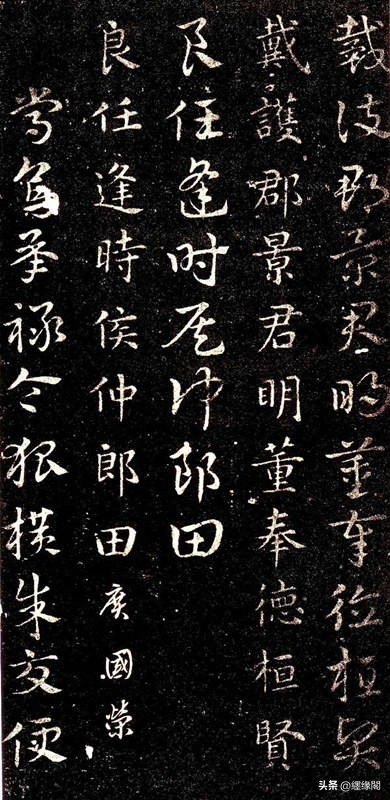 戴護郡景君明董奉德桓賢
戴護郡景君明董奉德桓賢
良任逢時侯仲郎田
良任逢時侯仲郎田廣國榮
常烏承祿令狐橫朱交便
头条 @纒缘閣